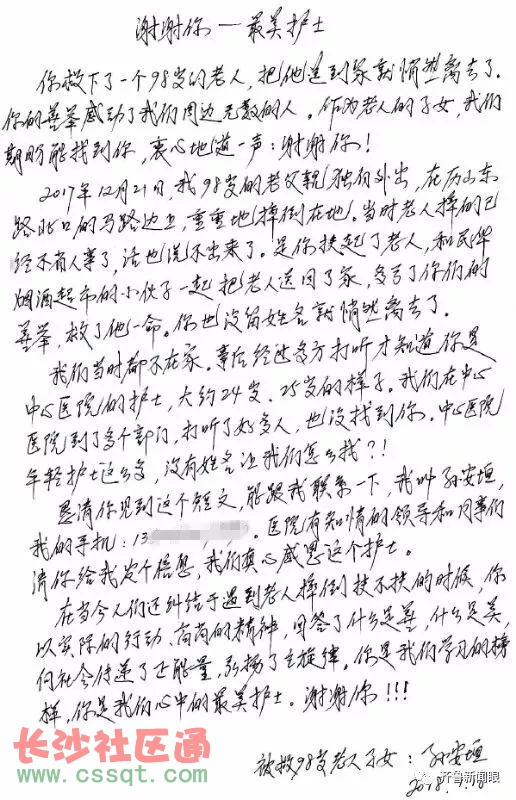 谢谢你—最美护士
你救下了一个98岁的老人，把他送到家就悄然离去了。
你的善举感动了我们周边无数的人。作为老人的子女，我们
期盼能找到你，衷心地道一声：谢谢你！
2017年12月21日，我98岁的老父亲独自外出，在历山东
路北口的马路边上，重重地摔倒在地。当时老人摔的已
经不省人事了，话也说不出来了。是你扶起了老人，和民华
烟酒超市的小伙子一起把老人送回了家，多亏了你们的
善举，救了他一命。你也没留姓名就悄然离去了。
我们当时都不在家。事后经过多方打听才知道你是
中心医院的护士，大约24岁、25岁的样子。我们在中心
医院到了多个部门，打听了好多人，也没找到你。中心医院
年轻护士这么多，没有姓名让我们怎么找？！
恳请你见到这个短文，能跟我联系一下，我叫孙安垣，
我的手机：13 。医院有知情的领导和同事们
请你给我发个信息，我们真心感恩这个护士。
在当今人们还纠结于遇到老人摔倒扶不扶的时候，你
以实际的行动、高尚的精神，回答了什么是善，什么是美，
向社会传递了正能量，弘扬了主旋律。你是我们学习的榜
样，你是我们心中的最美护士。谢谢你！！！
被救98岁老人子女：孙安垣
2018.1.
长沙社区通
www.cssqt.com
齐鲁新闻眼